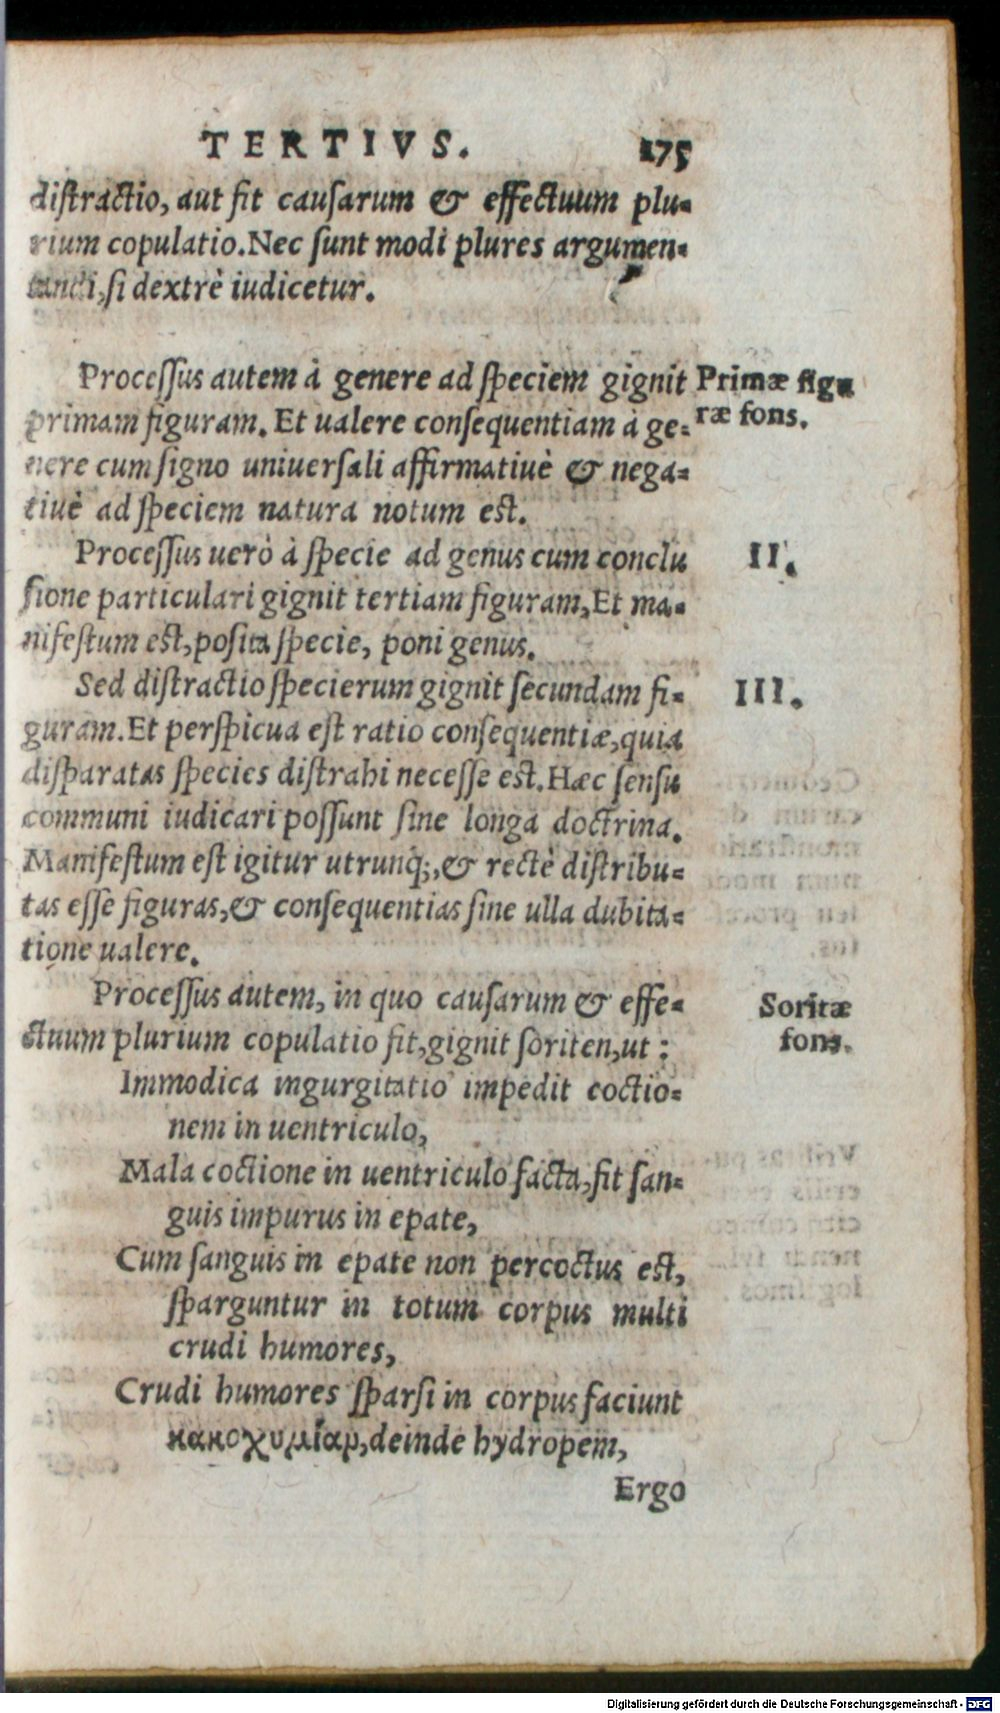 TERTIVS. 175
distractio, aut fit causarum & effectuum plu-
rium copulatio. Nec sunt modi plures argumen-
tandi, si dextrè iudicetur.
Processus autem à genere ad speciem gignit
Primæ figu
primam figuram. Et ualere consequentiam à ge-
ræ fons.
nere cum signo uniuersali affirmatiuè & nega-
tiuè ad speciem natura notum est.
Processus uerò à specie ad genus cum conclu
II.
sione particulari gignit tertiam figuram, Et ma-
nifestum est, posita specie, poni genus.
Sed distractio specierum gignit secundam fi-
III.
guram. Et perspicua est ratio consequentiæ, quia
disparatas species distrahi necesse est. Hæc sensu
communi iudicari possunt sine longa doctrina.
Manifestum est igitur utrunq;, & rectè distribu-
tas esse figuras, & consequentias sine ulla dubita-
tione ualere.
Processus autem, in quo causarum & effe-
Soritæ
ctuum plurium copulatio fit, gignit soriten, ut :
fons.
Immodica ingurgitatio impedit coctio-
nem in uentriculo,
Mala coctione in uentriculo facta, fit san-
guis impurus in epate,
Cum sanguis in epate non percoctus est,
sparguntur in totum corpus multi
crudi humores,
Crudi humores sparsi in corpus faciunt
κακοχυμίαν, deinde hydropem,
Ergo
Digitalisierung gefördert durch die Deutsche Forschungsgemeinschaft - DFG